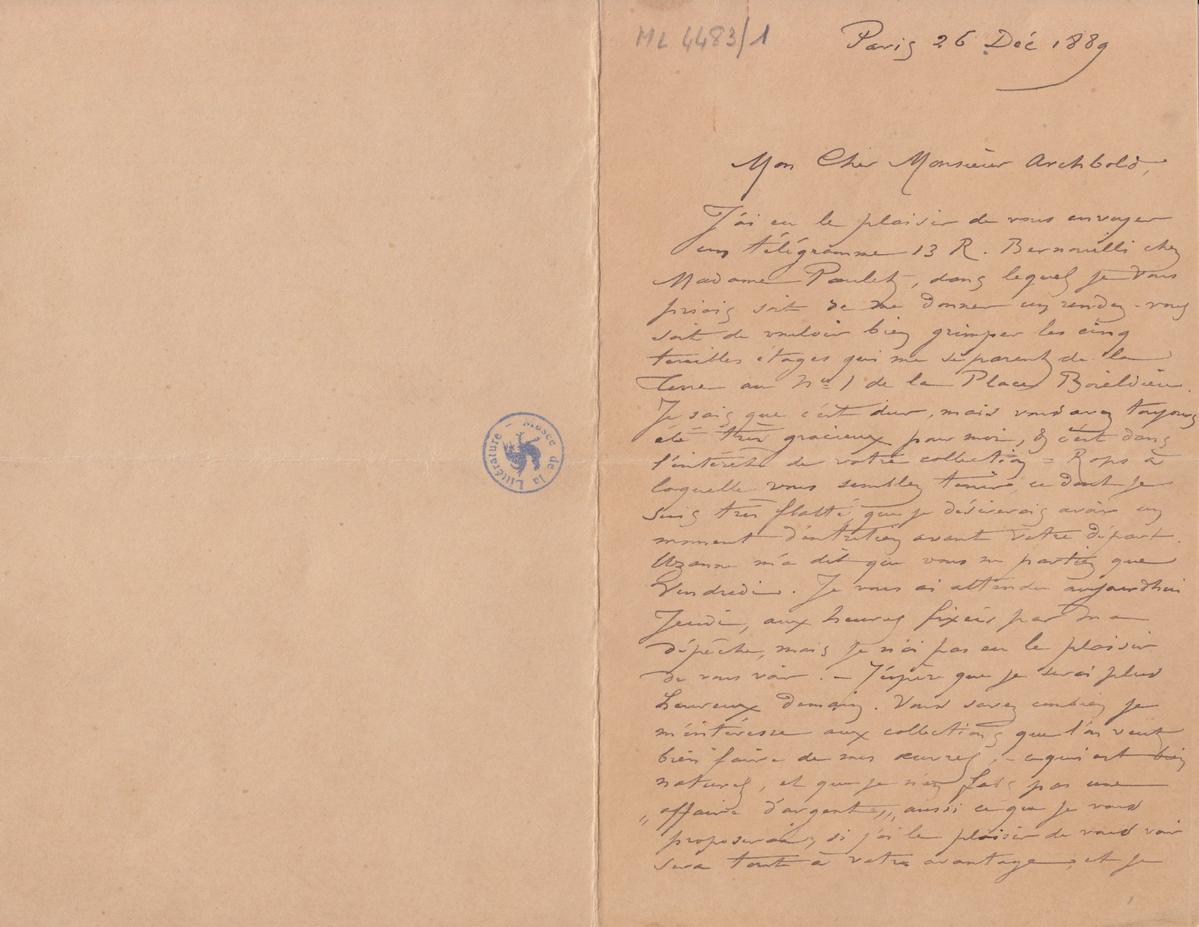 ML 4483/1
Paris 26 Déc 1889
Mon Cher Monsieur Archbold,
J'ai eu le plaisir de vous envoyer
un télégramme 13 R. Bernouilli chez
Madame Paulet, dans lequel je vous
priais soit de me donner un rendez-vous
soit de vouloir bien grimper les cinq
terribles étages qui me séparent de la
Terre au No 1 de la Place Boieldieu.
Je sais que c'est dur, mais vous avez toujours
été très gracieux pour moi, & c'est dans
l'intérêt de votre collection = Rops à
laquelle vous semblez tenir, ce dont je
suis très flatté, que je désirerais avoir un
moment d'entretien avant votre départ.
Uzanne m'a dit que vous ne partiez que
Vendredi. Je vous ai attendu aujourdhui
Jeudi, aux heures fixées par ma
dépêche, mais je n'ai pas eu le plaisir
de vous voir. – J'espère que je serai plus
heureux demain. Vous savez combien je
m'intéresse aux collections que l'on veut
bien faire de mes œuvres, – ce qui est bien
naturel, et que je n'en fais pas une
"affaire d'argent", aussi ce que je vous
proposerai, si j'ai le plaisir de vous voir
sera tout à votre avantage, et je
Musée de la Littérature